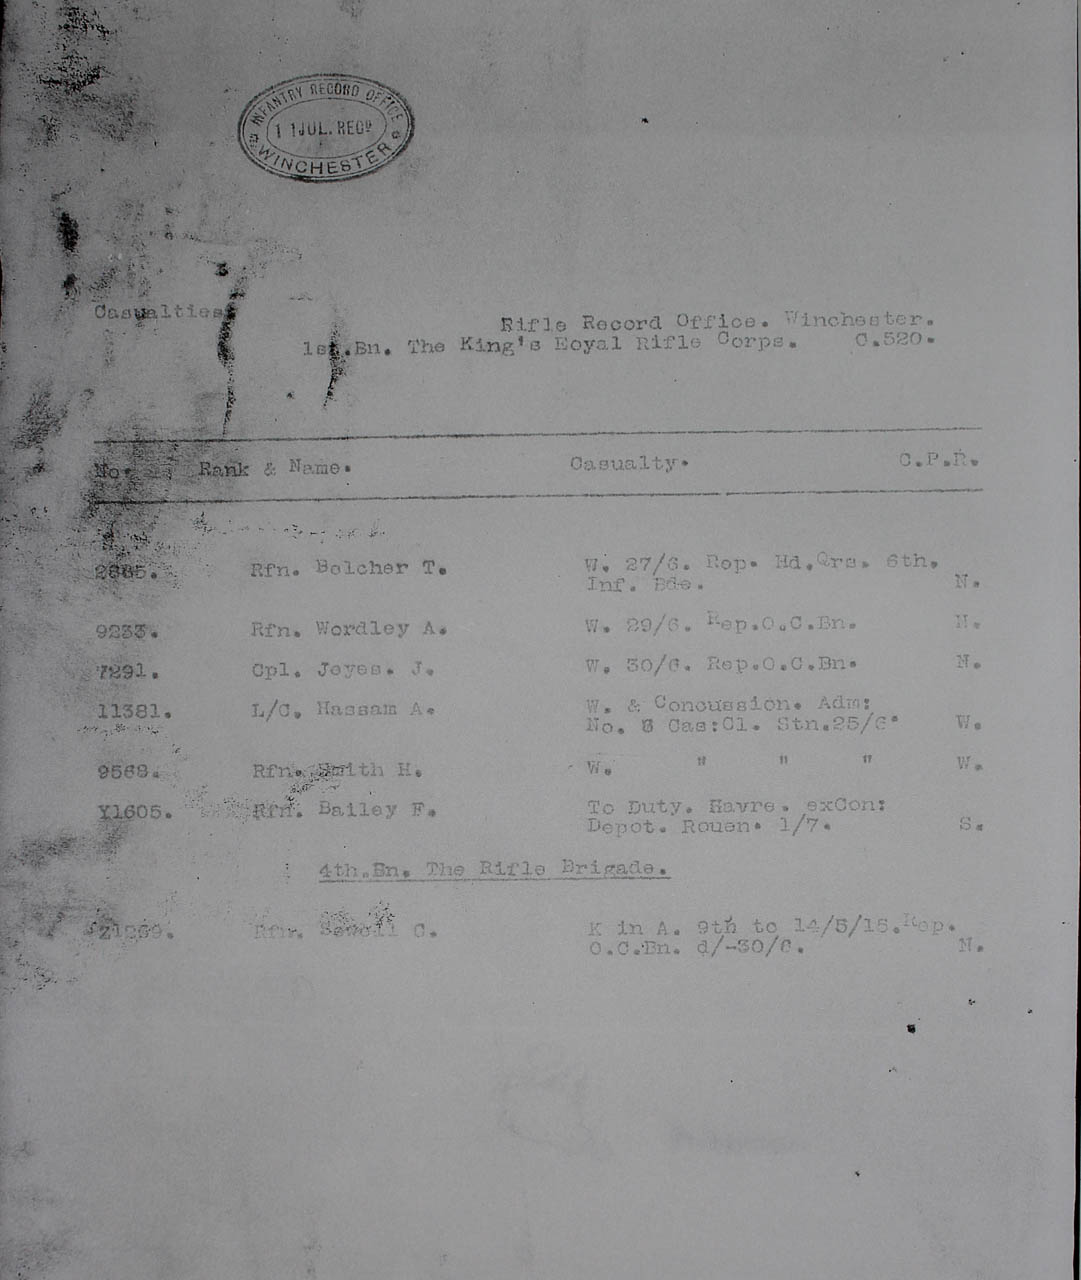 INFANTRY RECORD OFFICE
11 JUL. RECD
WINCHESTER
Casualties
Rifle Record Office. Winchester.
1st.Bn. The King's Royal Rifle Corps. C.520.
No. Rank & Name. Casualty. C.P.R.
Rfn. Bolcher T. W. 27/6. Rep. Hd.Qrs. 6th.
Inf. Bde. N.
9233. Rfn. Wordley A. W. 29/6. Rep.O.C.Bn. N.
7291. Cpl. Joyes. J. W. 30/6. Rep.O.C.Bn. N.
11381. L/C. Hassam A. W. & Concussion. Adm:
No. Cas:Cl. Stn.25/6. W.
9568. Rfn. Smith H. W. " " " W.
Y1605. Rfn. Bailey F. To Duty. Havre. exCon:
Depot. Rouen. 1/7. S.
4th.Bn. The Rifle Brigade.
Rfn. C. K in A. 9th to 14/5/15.Rep.
O.C.Bn. d/-30/6. N.